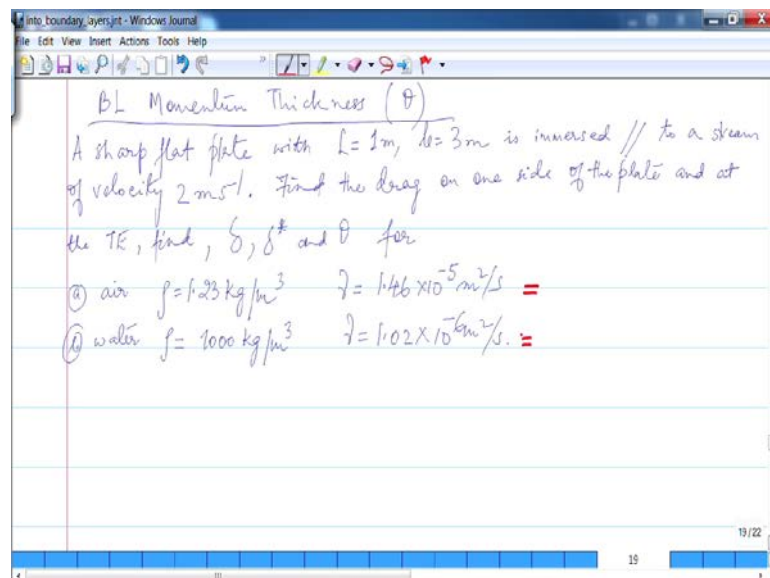 into_boundary_layers.jnt - Windows Journal
File Edit View Insert Actions Tools Help
BL Momentum Thickness (θ)
A sharp flat plate with L = 1m, b = 3m is immersed // to a stream
of velocity 2 ms^-1. Find the drag on one side of the plate and at
the TE, find, δ, δ* and θ for
(a) air ρ = 1.23 kg/m³ ν = 1.46 × 10⁻⁵ m²/s =
(b) water ρ = 1000 kg/m³ ν = 1.02 × 10⁻⁶ m²/s. =
19/22
19